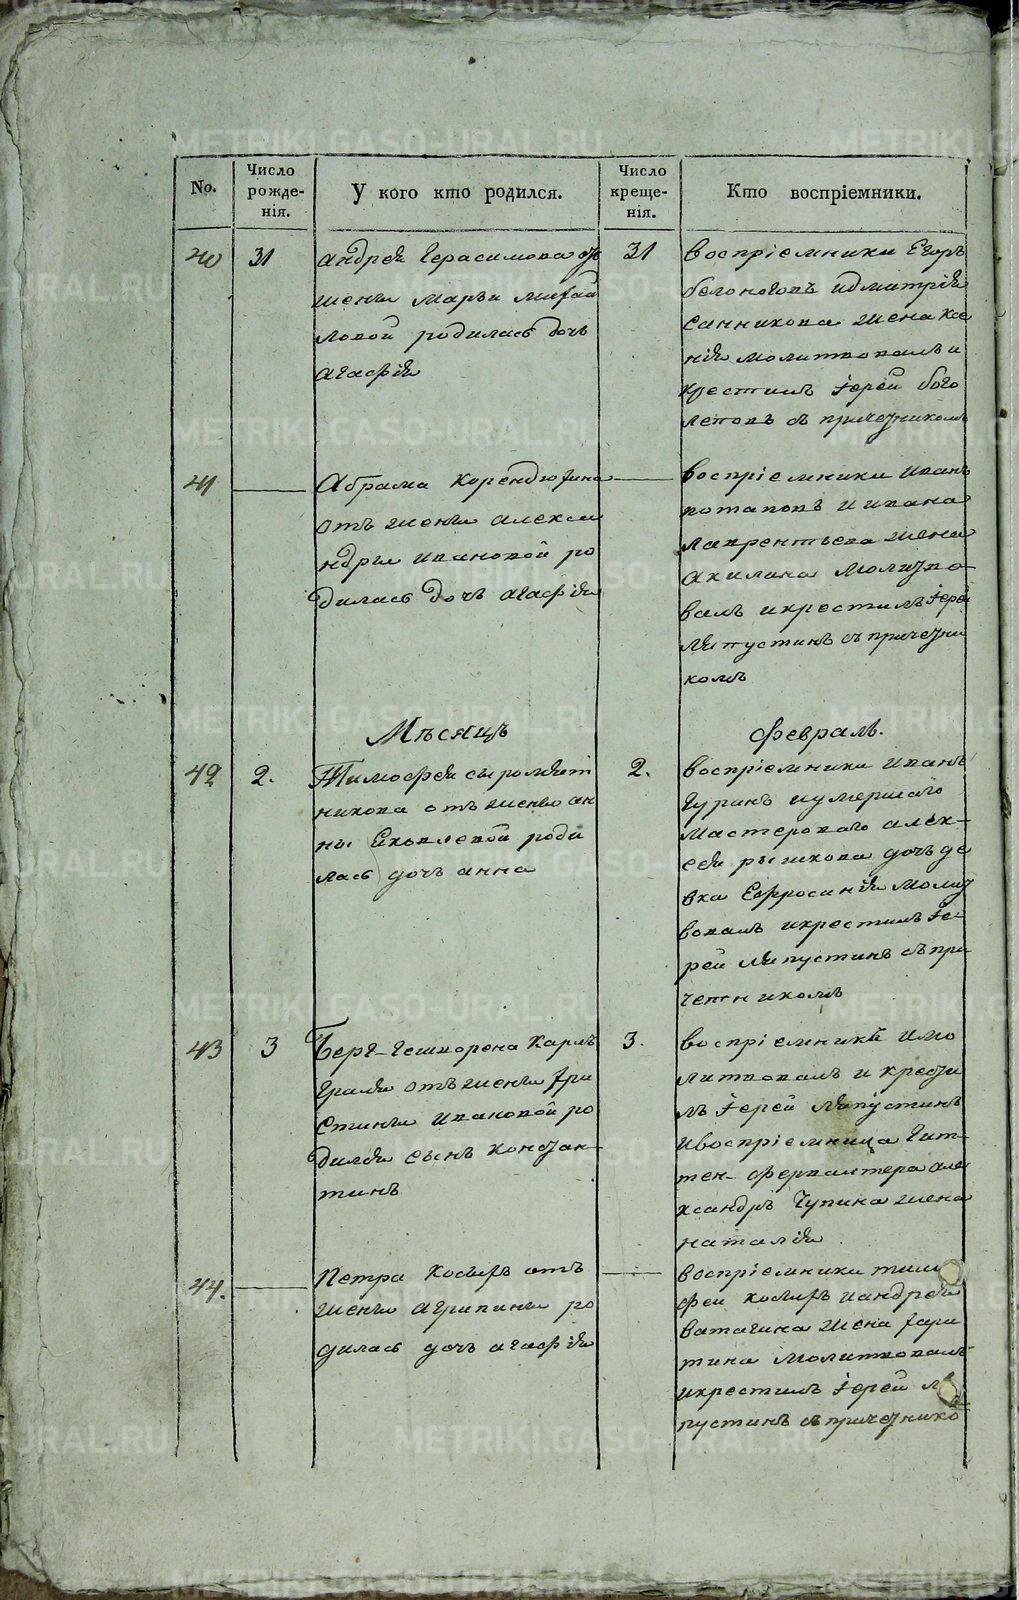 METRIKI.GASO-URAL.RU
No.
Число рожде-нія.
У кого кто родился.
Число креще-нія.
Кто воспріемники.
40
31
андрея Герасимова отъ
жены Марьи Михаи
ловой родилась дочь
агафія
31
воспріемники Егоръ
белоноговъ и дмитрія
санникова жена Ксе
нія молитвовалъ и
крестилъ іерей бого
леповъ съ причетникомъ
41
Абрама Корендюхина
отъ жены алекса
ндры ивановой ро
дилась дочь агафія
воспріемники иванъ
потаповъ и ивана
лаврентьева жена
акилина молитво
валъ и крестилъ іерей
ляпустинъ съ причетни
комъ
Мѣсяцъ
февраль.
42
2.
Тимофея сыромят
никова отъ жены ан
ны Яковлевой роди
лась дочь анна
2.
воспріемники иванъ
Чуринъ и умершаго
мастероваго алек-
сея рыжкова дочь де
вка Ефросинія молит
вовалъ и крестилъ іе
рей ляпустинъ съ при
четникомъ
43
3
Берг-гешворена Карла
Грамя отъ жены хри
стины Ивановой ро
дился сынъ констан-
тинъ
3.
воспріемникъ и мо
литвовалъ и крести
лъ іерей ляпустинъ
и воспріемница Гит-
тен-фервалтера але
ксандръ Чупина жена
наталія
44.
Петра Косыхъ отъ
жены агрипины ро
дилась дочь агафія
воспріемники тимо
фей косыхъ и андрея
ватагина жена хари
тина молитвовалъ
и крестилъ іерей ля
пустинъ съ причетнико